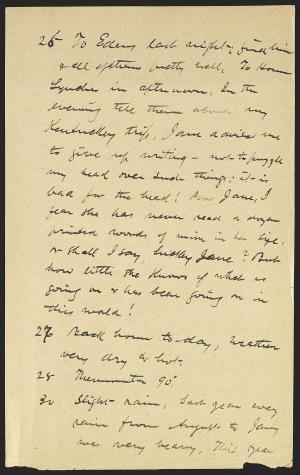 26 To Edens last night, find him
& all of them pretty well. To Home
Lynche in afternoon. In the
evening tell them about my
Kentuckey trip, Jane advises me
to give up writing — not to puzzle
my head over such things; it is
bad for the head! Poor Jane, I
fear she has never read a dozen
printed words of mine in her life.
or shall I say, lucky Jane? But
how little she knows of what is
going on & has been going on in
this world!
27 Back home to-day, weather
very dry & hot.
28 Thermometer 90°
30 Slight rain, Last year every
rain from August to Jany
was very heavy, This year